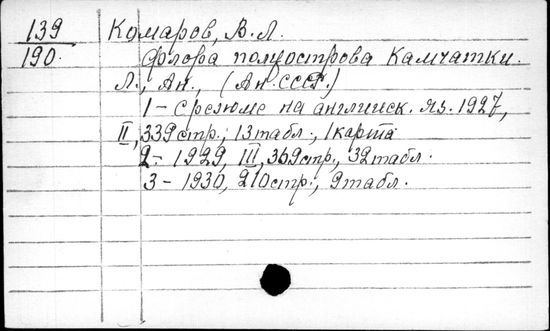 139 Комаров, В.Л.
190. Флора полуострова Камчатки.
Л., Ан., (Ан.СССР.)
1 - с резюме на английск. яз. 1927,
II, 339 стр., 13 табл., 1 карта
2 - 1929, III, 369 стр., 32 табл.
3 - 1930, 210 стр., 9 табл.